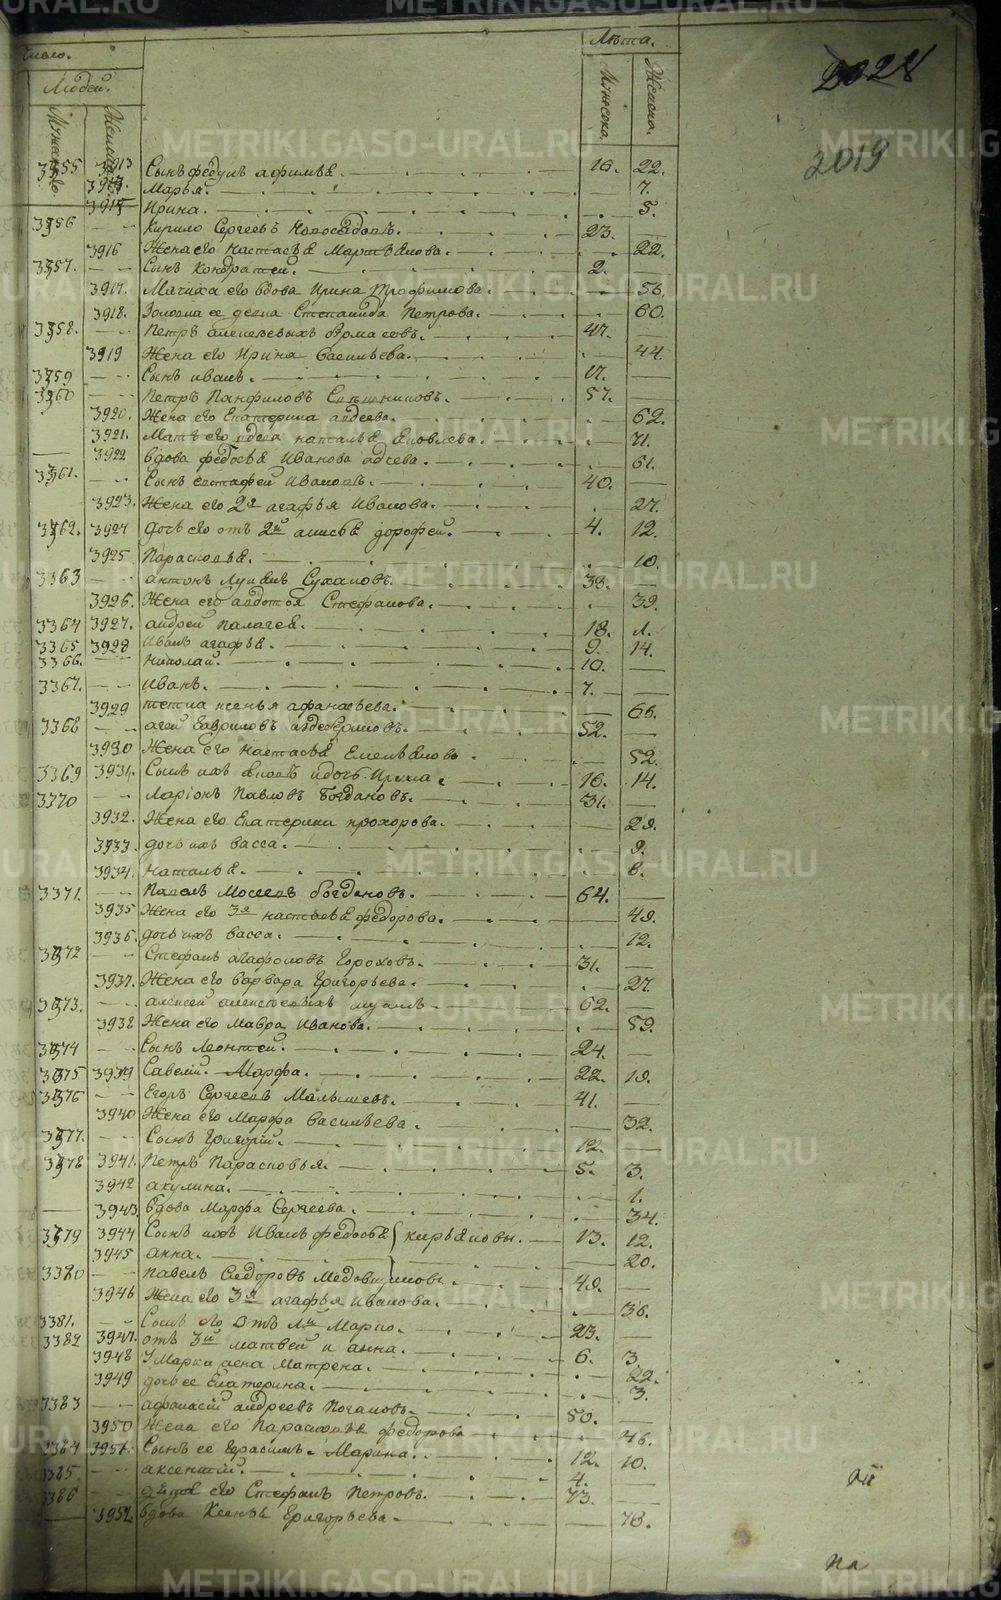 число. Лѣта. 2028
Людей. 2019
Мужеска. Женска. Мужска. Женска.
3355 3913 Сынъ федулъ афимья. 16. 22.
3914 Марья. 7.
3915 Ирина. 5.
3356 Кирило Сергеевъ 23.
3916 Жена его настасья Мартьянова. 22.
3357. Сынъ кондратей. 2.
3917. Мачиха его вдова Ирина Трофимова. 56.
3918. Золовка ее девка Степанида Петрова. 60.
3358. Петръ 47.
3919 Жена его Ирина васильева. 44.
3359 Сынъ иванъ. 17.
3360 Петръ Панфиловъ 57.
3920. Жена его Екатерина авдеева. 62.
3921. Мать его вдова наталья яковлева. 71.
3922 Вдова федосья Иванова 61.
3361. Сынъ евстафей Ивановъ. 40.
3923. Жена его 2я агафья Иванова. 27.
3362. 3924 дочь его отъ 2й анисья дорофей. 4. 12.
3925 Парасковья. 10.
3363 антонъ Сухановъ. 38.
3926. Жена его авдотья Стефанова. 39.
3364 3927. андрей палагея. 18. 1.
3365 3928 иванъ агафья. 9. 14.
3366. николай. 10.
3367. иванъ. 7.
3929 тетка ксенья афанасьева. 66.
3368 агей Гавриловъ 52.
3930 Жена его настасья Емельянова 52.
3369 3931. Сынъ ихъ яковъ идочь Ирина. 16. 14.
3370 Ларіонъ Павловъ Богдановъ. 31.
3932. Жена его Екатерина прохорова. 29.
3933. дочь ихъ васса. 9.
3934. наталья. 6.
3371. Павелъ Мосеевъ богдановъ. 64.
3935 Жена его 3я настасья федорова. 49.
3936. дочь ихъ васса. 12.
3372 Стефанъ агафоновъ Гороховъ. 31.
3937. Жена его варвара Григорьева. 27.
3373. алексей 62.
3938 Жена его Мавра Иванова. 59.
3374 Сынъ Леонтей. 24.
3375 3939 Савелий. Марфа. 22. 19.
3376 Егоръ Сергеевъ Малышевъ. 41.
3940 Жена его Марфа васильева. 32.
3377. Сынъ Григорий. 12.
3378 3941. Петръ Парасковья. 5. 3.
3942 акулина. 1.
3943 вдова Марфа Сергеева. 34.
3379 3944 Сынъ ихъ Иванъ федосья кирьяновы. 13. 12.
3945 анна. 20.
3380 Павелъ Сидоровъ Медовщиковъ. 49.
3946 Жена его 3я агафья иванова. 36.
3381. Сынъ его отъ 1й Марко. 23.
3382 3947. отъ 3й матвей и анна. 6. 3.
3948 У Марка жена Матрена. 22.
3949 дочь ее Екатерина. 3.
3383 афанасій андреевъ Погановъ. 50.
3950 Жена его Парасковья федорова 46.
3384 3951. Сынъ ее Герасимъ. Марина. 12. 10.
3385. аксентій. 4.
3386 дядя его Стефанъ Петровъ. 73.
3952. вдова Ксенья Григорьева. 78.
на
METRIKI.GASO-URAL.RU